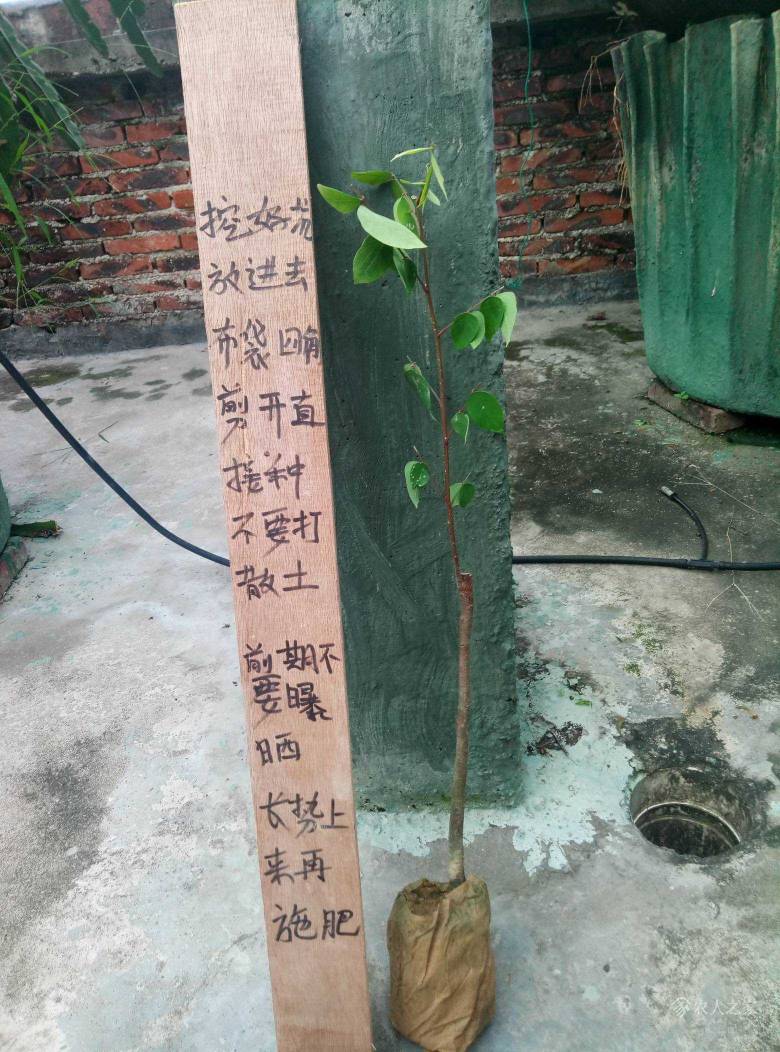 挖好坑
放进去
布袋四角
剪开直
接种
不要打
散土
前期不
要曝
晒
长势上
来再
施肥
农人之家